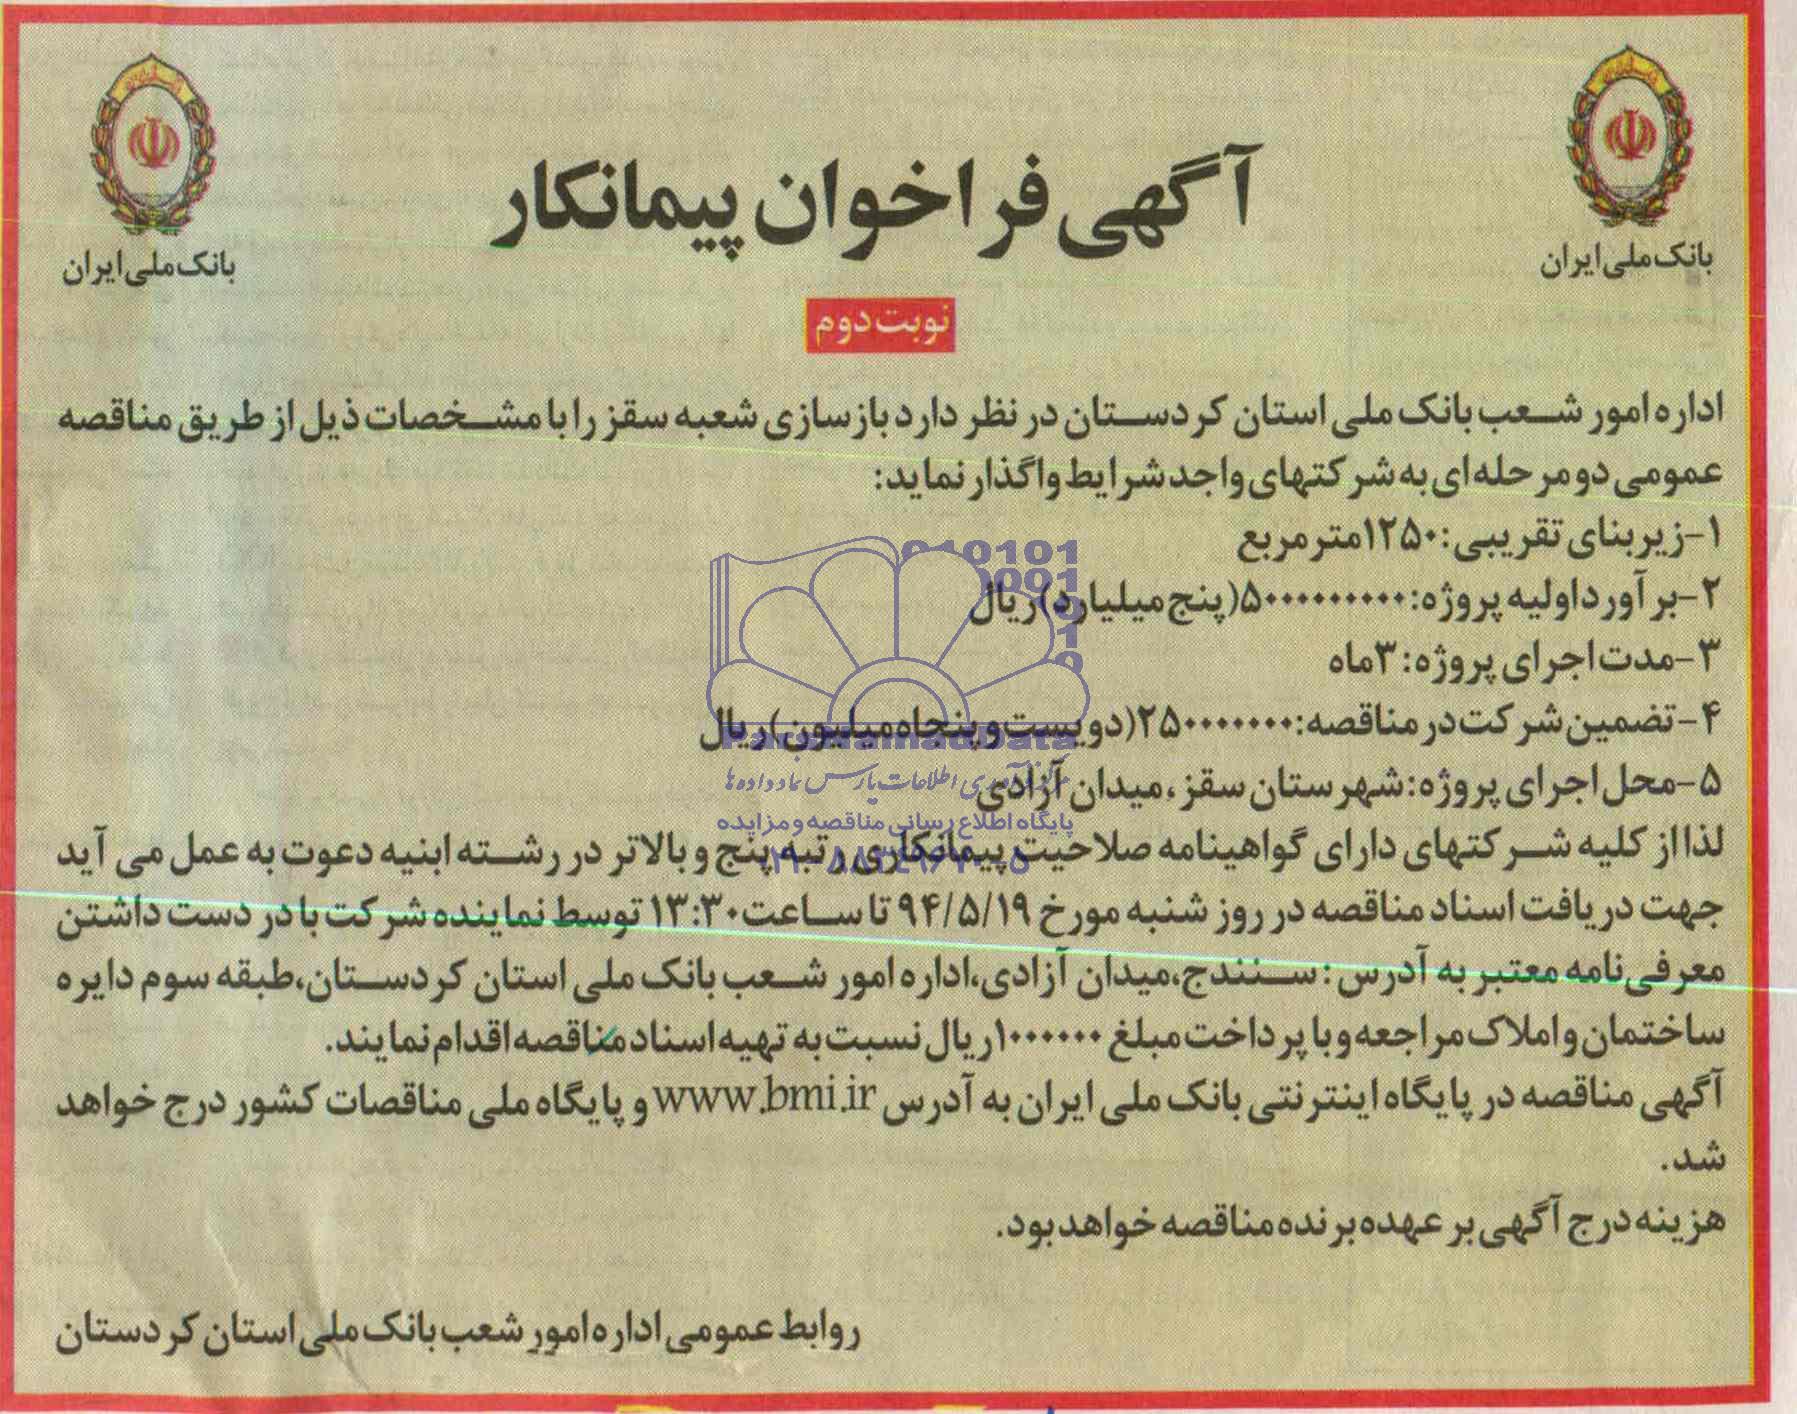 بانک ملی ایران
بانک ملی ایران
آگهی فراخوان پیمانکار
نوبت دوم
اداره امور شعب بانک ملی استان کردستان در نظر دارد بازسازی شعبه سقز را با مشخصات ذیل از طریق مناقصه
عمومی دو مرحله ای به شرکتهای واجد شرایط واگذار نماید:
۱-زیربنای تقریبی: ۱۲۵۰متر مربع
۲-برآورد اولیه پروژه: ۵۰۰۰۰۰۰۰۰۰(پنج میلیارد)ریال
۳-مدت اجرای پروژه: ۳ماه
۴-تضمین شرکت در مناقصه: ۲۵۰۰۰۰۰۰۰(دویست و پنجاه میلیون)ریال
۵-محل اجرای پروژه: شهرستان سقز، میدان آزادی
لذا از کلیه شرکتهای دارای گواهینامه صلاحیت پیمانکاری رتبه پنج و بالاتر در رشته ابنیه دعوت به عمل می آید
جهت دریافت اسناد مناقصه در روز شنبه مورخ ۹۴/۵/۱۹ تا ساعت ۱۳:۳۰ توسط نماینده شرکت با در دست داشتن
معرفی نامه معتبر به آدرس: سنندج، میدان آزادی، اداره امور شعب بانک ملی استان کردستان، طبقه سوم دایره
ساختمان و املاک مراجعه و با پرداخت مبلغ ۱۰۰۰۰۰۰ریال نسبت به تهیه اسناد مناقصه اقدام نمایند.
آگهی مناقصه در پایگاه اینترنتی بانک ملی ایران به آدرس www.bmi.ir و پایگاه ملی مناقصات کشور درج خواهد
شد.
هزینه درج آگهی بر عهده برنده مناقصه خواهد بود.
روابط عمومی اداره امور شعب بانک ملی استان کردستان
پایگاه اطلاع رسانی مناقصه و مزایده